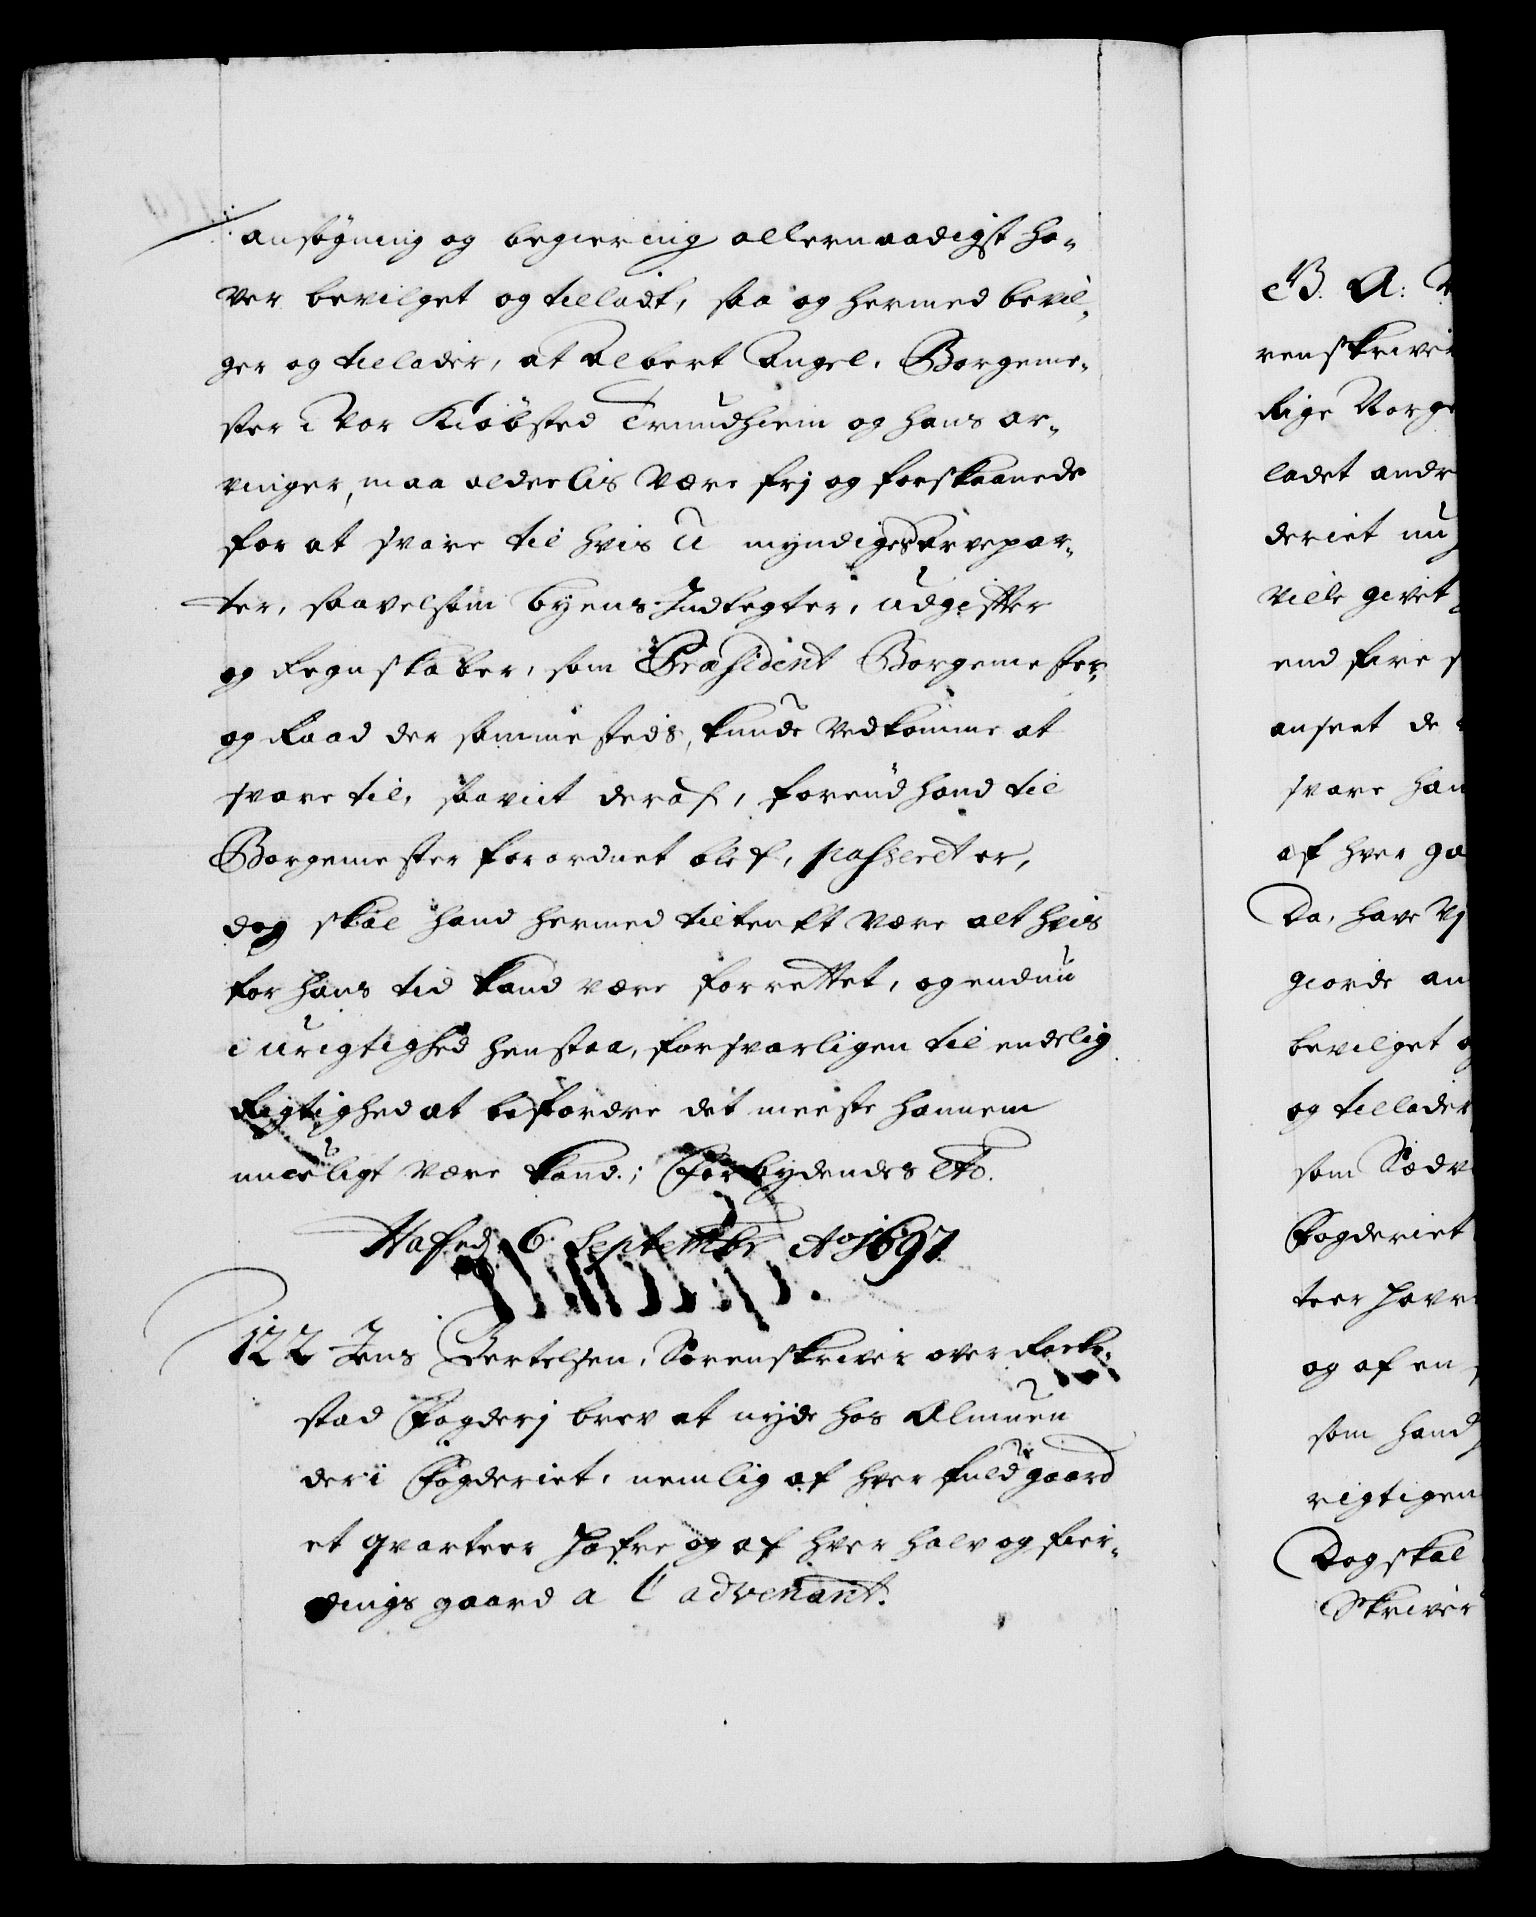 ansøgning og begiering allernaadigst ha-
ver bevilget og tilladt, saa og hermed bevil-
ger og tillader, at Albert Angel, Borgeme-
ster i Vor Kiøbsted Trundhiem og hans ar-
vinger, maa aldeelis være frj og forskaanede
for at svare til hvis U myndiges Arvepar-
ter, saavelsom byens Indtegter, udgifter
og Regnskaber, som Præsident Borgemester
og Raad der sammesteds, kunde vedkomme at
svare til, saavit deraf, forend hand til
Borgemester forordnet blef, passeret er,
dog skal hand hermed tiltenkt være alt hvis
for hans tid kand være forrettet, og endnu
i urigtighed henstaa, forsvarligen til endelig
Rigtighed at befordre det meeste hannem
mueligt være kand.; Forbydendes etc.
Hafn d. 6. Septembr Ao 1697.
122 Jens Bertelsen, Sorenskriver over Fosse-
stad Fogderj brev at nyde hos Almuen
der i Fogderiet, nemlig af hver fuld gaard
et qvarteer Hafre og af hver halv og fier-
dings gaard a l'advenant.
B. A: V
renskriver
Rige Norge
ladet andr
deriet nu
ville givet
end fire
anseet de
svare han
af hver ga
Da, have Vj
giorde an
bevilget o
og tillader
som Sædv
Fogderiet
teer havr
og af en
som hand
rigtigen
Dog skal
Skriver